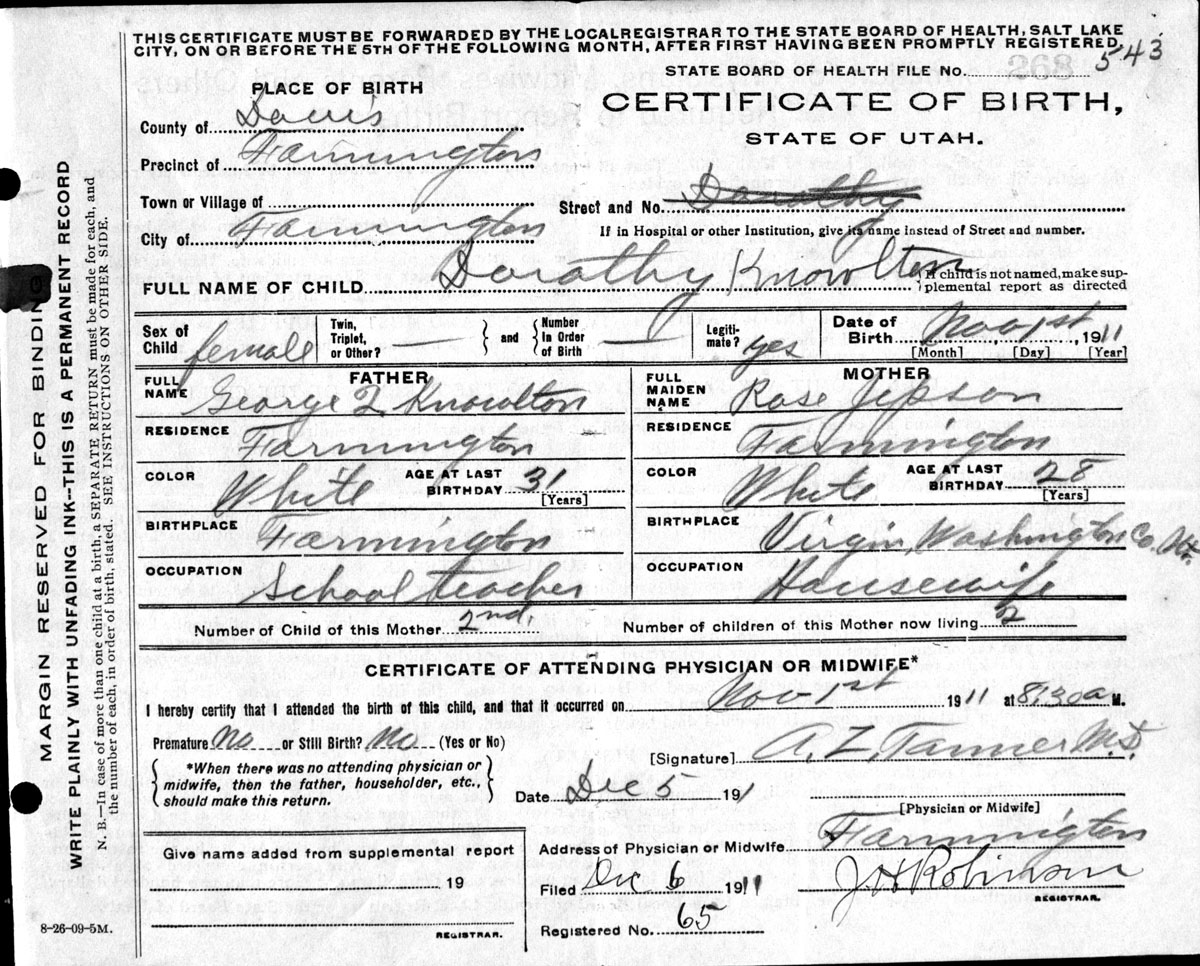 THIS CERTIFICATE MUST BE FORWARDED BY THE LOCAL REGISTRAR TO THE STATE BOARD OF HEALTH, SALT LAKE
CITY, ON OR BEFORE THE 5TH OF THE FOLLOWING MONTH, AFTER FIRST HAVING BEEN PROMPTLY REGISTERED.
STATE BOARD OF HEALTH FILE No. 543
PLACE OF BIRTH
CERTIFICATE OF BIRTH,
STATE OF UTAH.
County of Davis
Precinct of Farmington
Town or Village of
Street and No. Dorothy
City of Farmington
If in Hospital or other Institution, give its name instead of Street and number.
FULL NAME OF CHILD Dorathy Knowlton
If child is not named, make sup-
plemental report as directed
Sex of Child female
Twin, Triplet, or Other? — and Number in Order of Birth —
Legiti-mate? yes
Date of Birth Nov 1st, 1911
[Month] [Day] [Year]
FATHER
FULL NAME George Q Knowlton
RESIDENCE Farmington
COLOR White AGE AT LAST BIRTHDAY 31
[Years]
BIRTHPLACE Farmington
OCCUPATION School teacher
MOTHER
FULL MAIDEN NAME Rose Jepson
RESIDENCE Farmington
COLOR White AGE AT LAST BIRTHDAY 28
[Years]
BIRTHPLACE Virgin, Washington Co.
OCCUPATION Housewife
Number of Child of this Mother 2nd.
Number of children of this Mother now living 2
CERTIFICATE OF ATTENDING PHYSICIAN OR MIDWIFE*
I hereby certify that I attended the birth of this child, and that it occurred on Nov 1st 1911 at 8:30 a M.
Premature No or Still Birth? No (Yes or No)
*When there was no attending physician or
midwife, then the father, householder, etc.,
should make this return.
[Signature] A. Z. Tanner M.D.
Date Dec 5 191
[Physician or Midwife]
Address of Physician or Midwife Farmington
Give name added from supplemental report
19
REGISTRAR.
Filed Dec 6 1911
J H Robinson
REGISTRAR.
Registered No. 65
8-26-09-5M.
MARGIN RESERVED FOR BINDING
WRITE PLAINLY WITH UNFADING INK--THIS IS A PERMANENT RECORD
N. B.—In case of more than one child at a birth, a SEPARATE RETURN must be made for each, and
the number of each, in order of birth, stated. SEE INSTRUCTIONS ON OTHER SIDE.